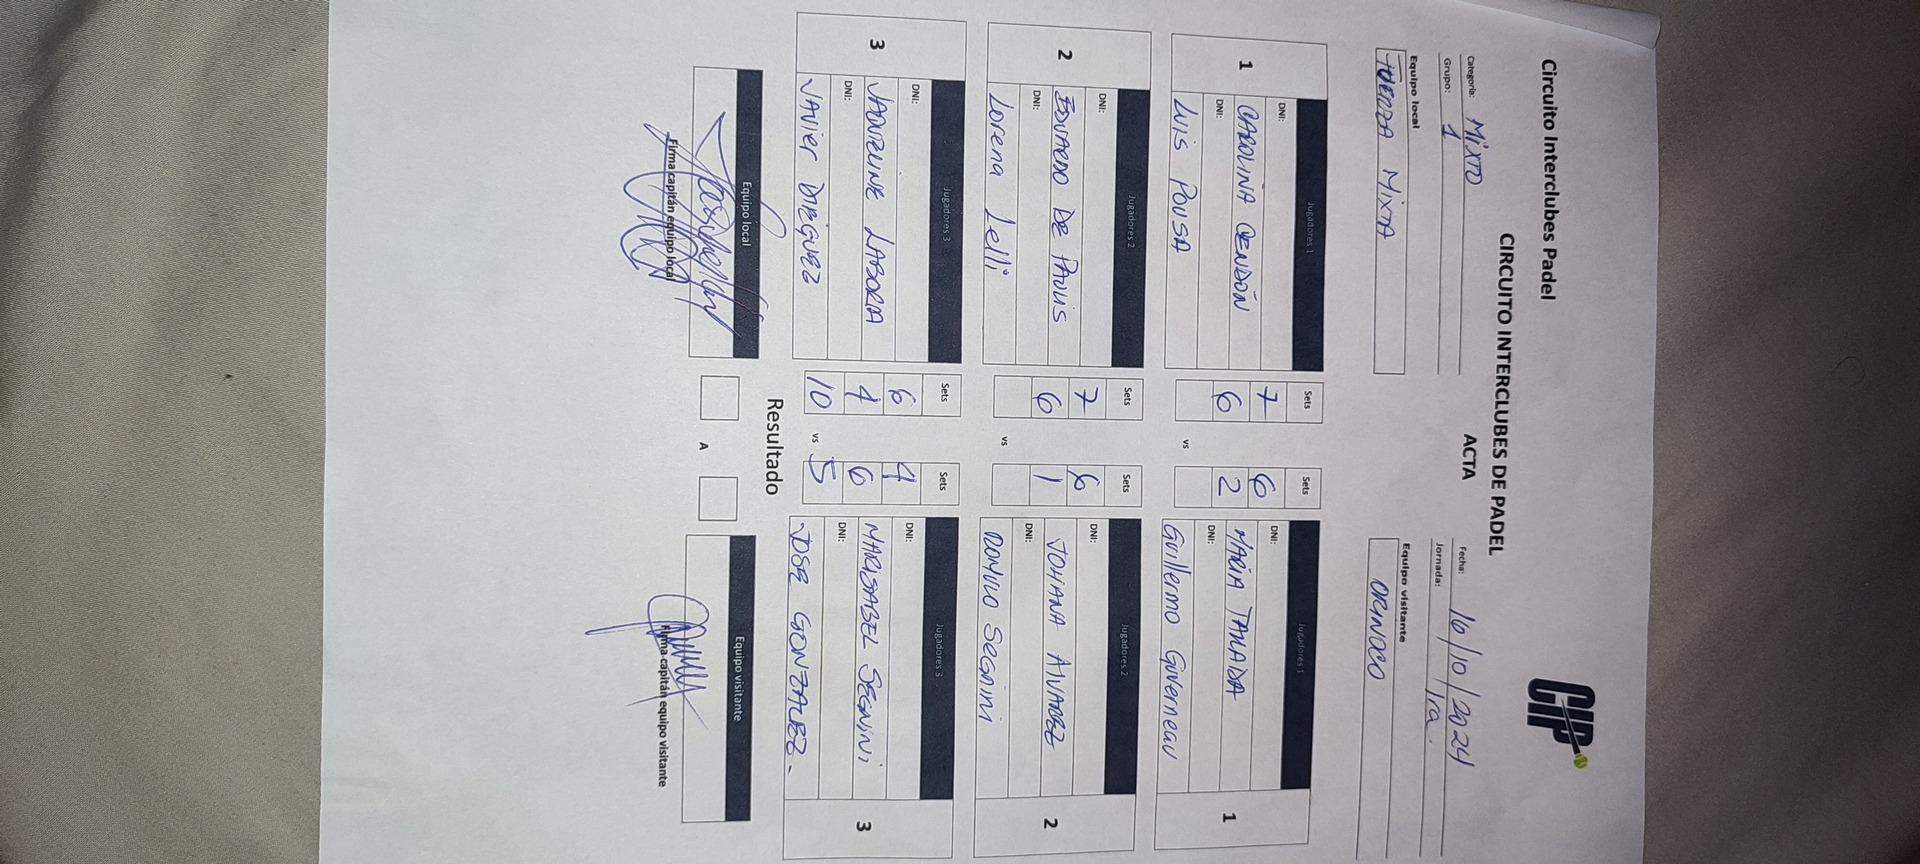 Circuito Interclubes Padel
CIP
CIRCUITO INTERCLUBES DE PADEL
ACTA
Categoria: Mixto
Fecha: 16/10/2024
Grupo: 1
Jornada: 1ra.
Equipo local
Equipo visitante
MIXTA
ORINOCO
1 Jugadores 1 Sets Sets Jugadores 1 1
DNI: 7 6 DNI:
CAROLINA CENDÓN 6 2 MARÍA
DNI: vs DNI:
LUIS POUSA Guillermo Guverneau
2 Jugadores 2 Sets Sets Jugadores 2 2
DNI: 7 6 DNI:
EDUARDO DE PAULIS 6 1 JOHANA ALVAREZ
DNI: vs DNI:
Lorena Lelli ROMULO SEGNINI
3 Jugadores 3 Sets Sets Jugadores 3 3
DNI: 6 4 DNI:
LABORIA 4 6 MARISABEL SEGNINI
DNI: 10 vs 5 DNI:
JAVIER DIEGUEZ JOSE GONZALEZ.
Resultado
Equipo local A Equipo visitante
Firma capitán equipo local
Firma capitán equipo visitante